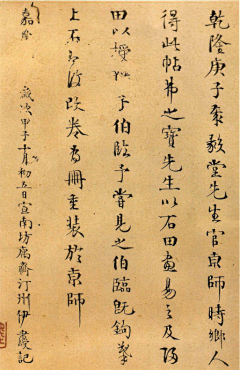 乾隆庚子秦毅堂先生官京師時鄉人
得此帖弗之寶先生以石田畫易之及歸
田以授似予伯臨予嘗見之伯臨既鉤摹
上石復改卷為冊重裝於京師
嘉慶
歲次甲子十月初五日宣南坊寓齋汀州伊秉綬記